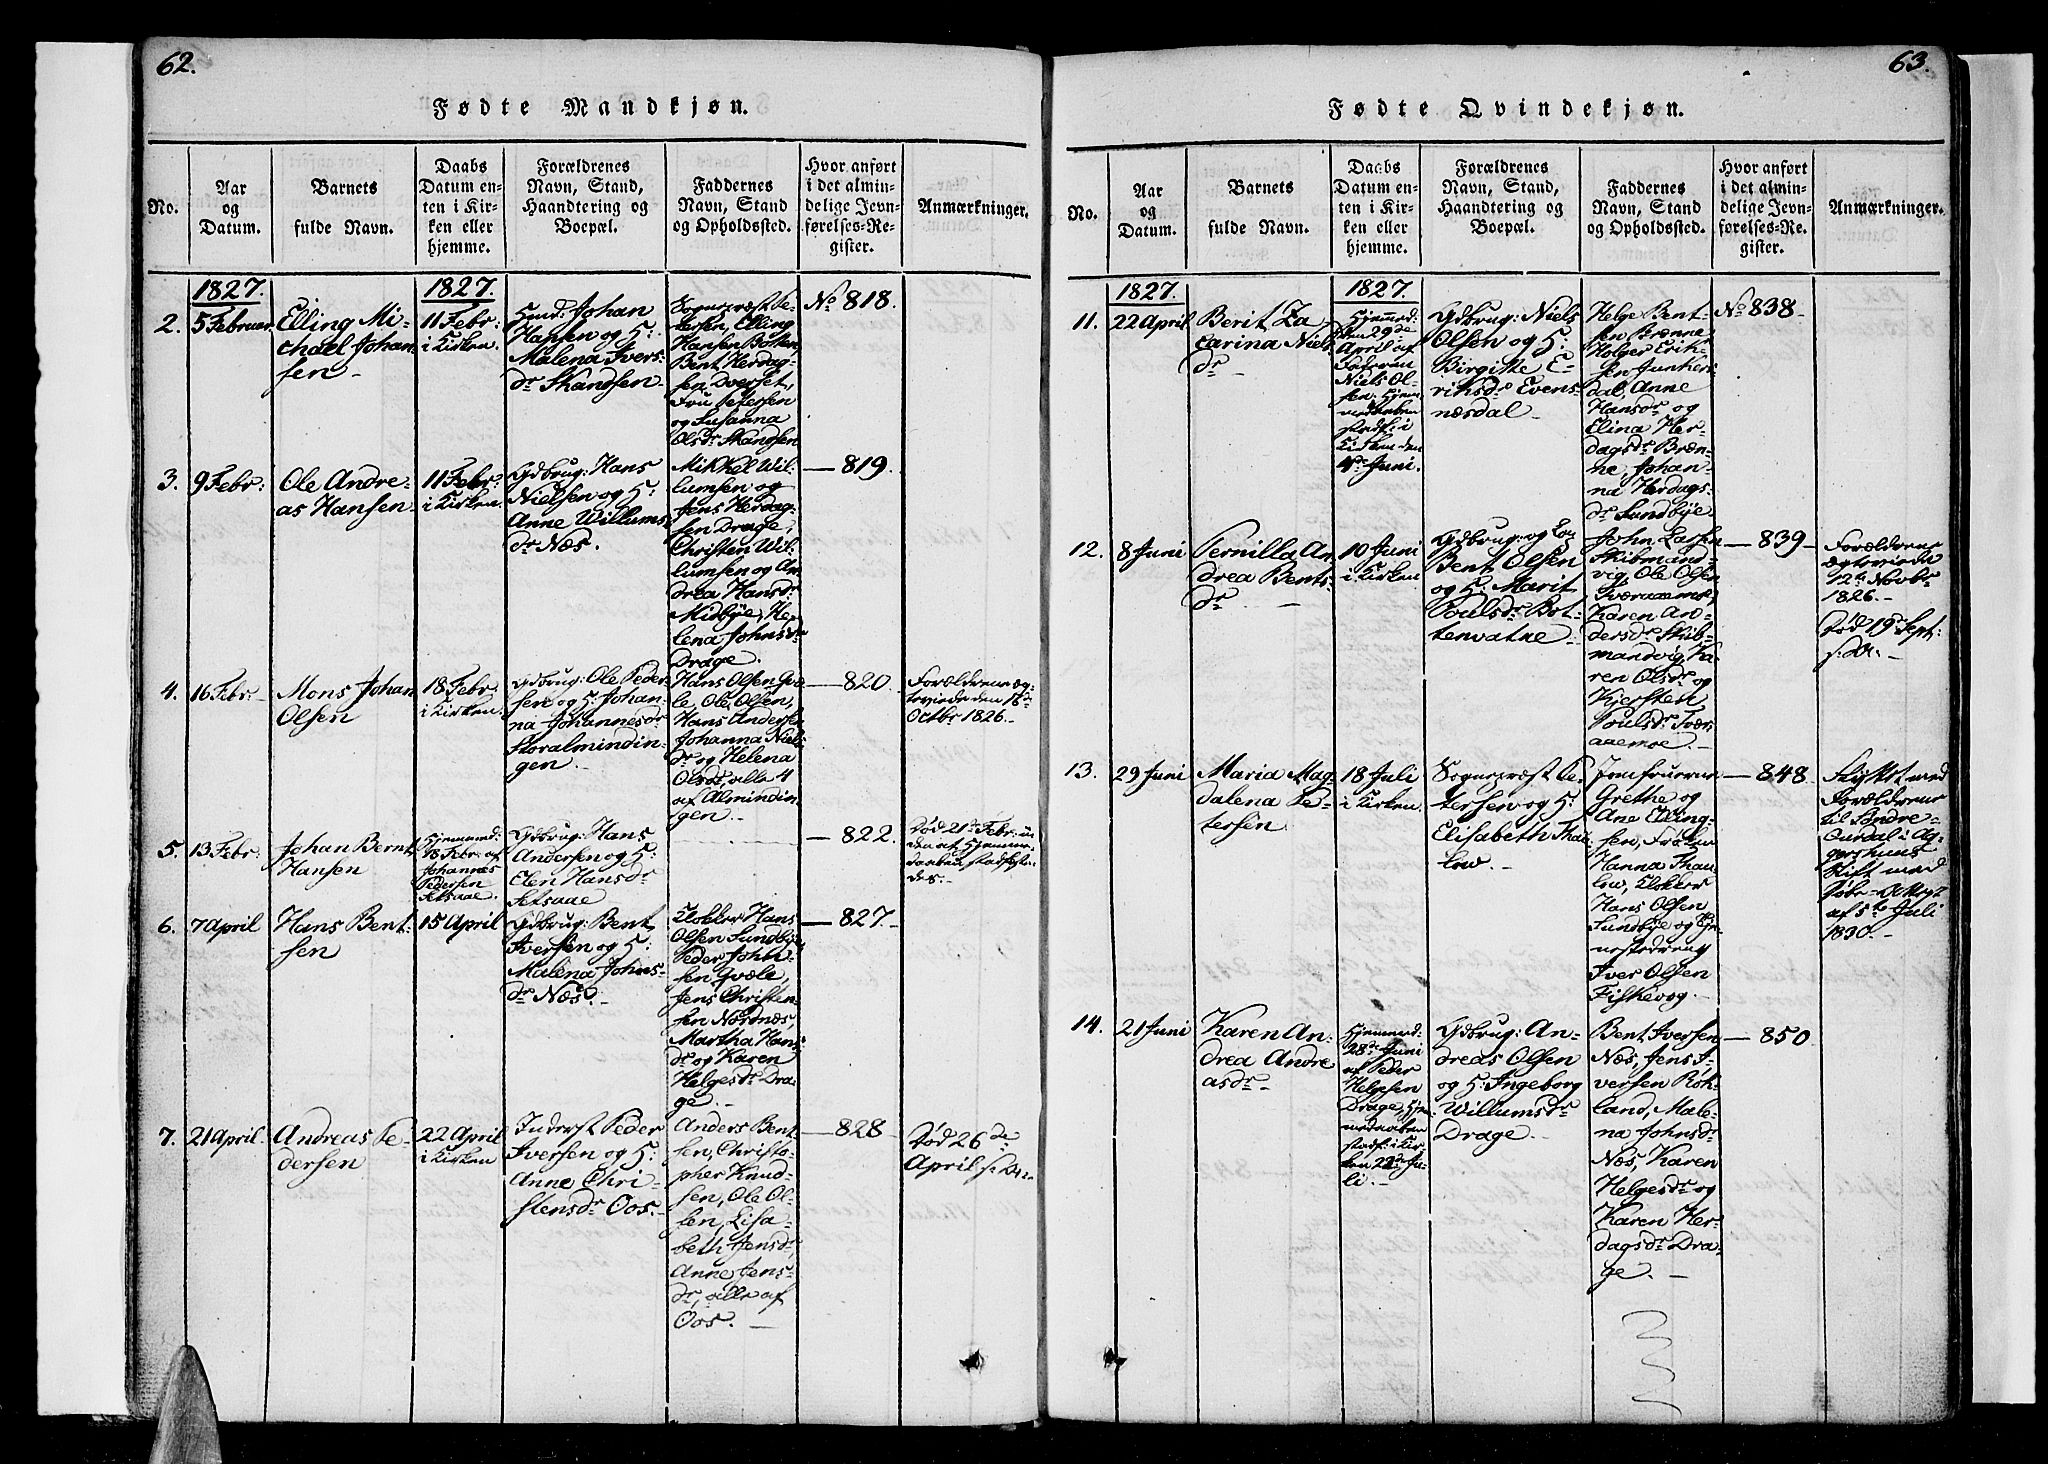 62.
Fødte Mandkjøn.
No.
Aar
og
Datum.
Barnets
fulde Navn.
Daabs
Datum en-
ten i Kir-
ken eller
hjemme.
Forældrenes
Navn, Stand,
Haandtering og
Boepæl.
Faddernes
Navn, Stand
og Opholdssted.
Hvor anført
i det almin-
delige Jevn-
førelses-Re-
gister.
Anmærkninger.
1827.
1827.
2.
5 Februar.
Elling Mi-
chael Johan-
sen
11 Febr:
i Kirken.
Huusd: Johan
Hansen og H:
Malena Ivers-
dr Skandsen
Sognepræst Pe-
tersen, Elling
Hansen
Bent Herdag-
sen Dverset,
Fru Petersen
og Susanna
Olsdr Skandsen
No 818.
3.
9 Febr:
Ole Andre-
as Hansen
11 Febr:
i Kirken.
Gdbrug: Hans
Nielsen og H:
Anne Willums-
dr Næs.
Mikkel Wil-
lumsen og
Jens Herdag-
sen Drage,
Christen Wil-
lumsen og An-
drea Hansdr
Midbye, He-
lena Johnsdr
Drage.
— 819.
4.
16 Febr:
Mons Johan
Olsen
18 Febr:
i Kirken.
Gdbrug: Ole Peder-
sen og H: Johan-
na Johannesdr
Storalmindin-
gen
Hans Olsen Qvæ-
le, Ole Olsen,
Hans Andersen
Johanna Niels-
dr og Helena
Olsdr, alle 4
af Almindin-
gen.
— 820.
Forældrene æg-
teviede den 16de
Octbr 1826.
5.
13 Febr:
Johan Bernt
Hansen
Hjemmed:
18 Febr: af
Johannes
Pedersen
Setsaae
Gdbrug: Hans
Andersen og H:
Elen Hansdr
Setsaae
— 822.
Død 21de Febr: in-
den at Hjemme-
daaben stadfæste-
des.
6.
7 April
Hans Bent-
sen
15 April
Gdbrug: Bent
Iversen og H:
Malena Johns-
dr Næs.
Klokker Hans
Olsen Sundbye,
Peder Johan-
sen Qvæle,
Jens Christen-
sen Nordnæs,
Martha Hans-
dr og Karen
Helgesdr Dra-
ge.
— 827.
7.
21 April
Andreas Pe-
dersen
22 April
i Kirken
Inderst Peder
Iversen og H:
Anne Chri-
stensdr Oos.
Anders Bent-
sen, Christo-
pher Knud-
sen, Ole Ol-
sen, Lisa-
beth Jensdr,
Anne Jens-
dr, alle af
Oos.
— 828
Død 26de
April s: A:
63.
Fødte Qvindekjøn.
No.
Aar
og
Datum.
Barnets
fulde Navn.
Daabs
Datum en-
ten i Kir-
ken eller
hjemme.
Forældrenes
Navn, Stand,
Haandtering og
Boepæl.
Faddernes
Navn, Stand
og Opholdssted.
Hvor anført
i det almin-
delige Jevn-
førelses-Re-
gister.
Anmærkninger.
1827.
1827.
11.
22 April
Berit Za-
carina Niels-
dr
Hjemmed:
den 29de
April af
Faderen
Niels Ol-
sen. Hjem-
medaaben
stadf: i
Kirken den
4de Juni.
Gdbrug: Niels
Olsen og H:
Birgitte E-
riksdr Evens-
næsdal
Helge Bent-
sen Brænne
Holger Erik-
sen Junkers-
dal, Anne
Hansdr og
Elina Her-
dagsdr Bræn-
ne, Johan-
na Herdags-
dr Sundbye
No 838
12.
8 Juni
Pernilla An-
drea Bents-
dr
10 Juni
i Kirken
Gdbrug: og
Bent Olsen
og H: Marit
Poulsdr Bot-
tenvatne
John Larsen
Skibmand-
vig, Ole Olsen
Tværaaemoe,
Karen An-
dersdr Skib-
mandvig, Ka-
ren Olsdr og
Kjersten
Poulsdr Tvær-
aaemoe.
— 839
Forældrene
ægteviede
12te Novbr
1826.
Død 19de Sept:
s: A:
13.
29 Juni
Maria Mag-
dalena Pe-
tersen
18 Juli
i Kirken
Sognepræst Pe-
tersen og H:
Elisabeth Thau-
low.
Jomfruerne
Grethe og
Ane Elling-
sen, Frøken
Hanna Thau-
low, Klokker
Hans Olsen
Sundbye og
Iver Olsen
Fiskevog.
— 848.
Flyttet med
Forældrene
til Søndre-
Aurdal i Ag-
gershuus
Stift med
af 5te Juli
1830.
14.
21 Juni
Karen An-
drea Andre-
asdr
Hjemmed:
28de Juni
af Peder
Helgesen
Drage, Hjem-
medaaben
stadf: i Kir-
ken 22de Ju-
li.
Gdbrug: An-
dreas Olsen
og H: Ingeborg
Willumsdr
Drage.
Bent Iversen
Næs, Jens I-
versen Røk-
land, Male-
na Johnsdr
Næs, Karen
Helgesdr og
Karen Her-
dagsdr Dra-
ge.
— 850.